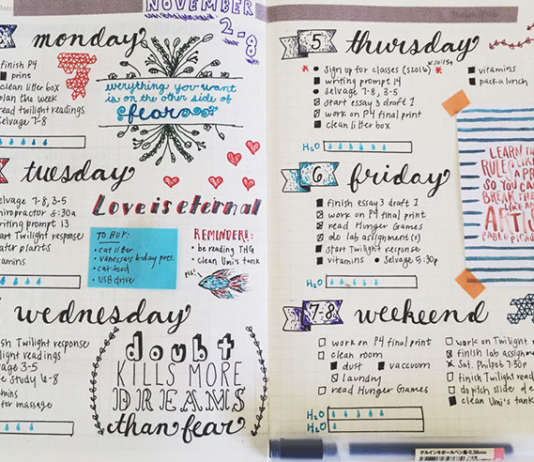 NOVEMBER
2-8
monday
finish P4
print
clean litter box
plan the week
read twilight readings
selvage 7-8
everything you want
is on the other side of
fear
tuesday
selvage 7-8, 3-5
chiropractor 8:30a
writing prompt 13
start Twilight response
water plants
vitamins
Love is eternal
TO BUY:
• cat litter
• vanessa's b'day pres.
• cat food
• USB drive
REMINDERS:
• be reading THG
• clean Umi's tank
wednesday
finish Twilight response
twilight readings
selvage 3-5
study 6-8
vitamins
massage
doubt
KILLS MORE
DREAMS
than fear
5 thursday
sign up for classes (SS016)
writing prompt 14
selvage 7-8, 3-5
start essay 3 draft 1
work on P4 final print
clean litter box
vitamins
pack lunch
H₂O
6 friday
finish essay 3 draft 1
work on P4 final print
read Hunger Games
do lab assignment(s)
start Twilight response
vitamins • selvage 5:30p
H₂O
LEARN THE
RULES LIKE
A PRO
SO YOU CAN
BREAK THEM
LIKE AN
ARTIST
PABLO PICASSO
7-8 weekend
work on P4 final print
clean room
dust vacuum
laundry
read Hunger Games
work on Twilight
finish lab assignment
Sat. Philpot 7:30p
finish Twilight
clean Umi's tank
H₂O
H₂O